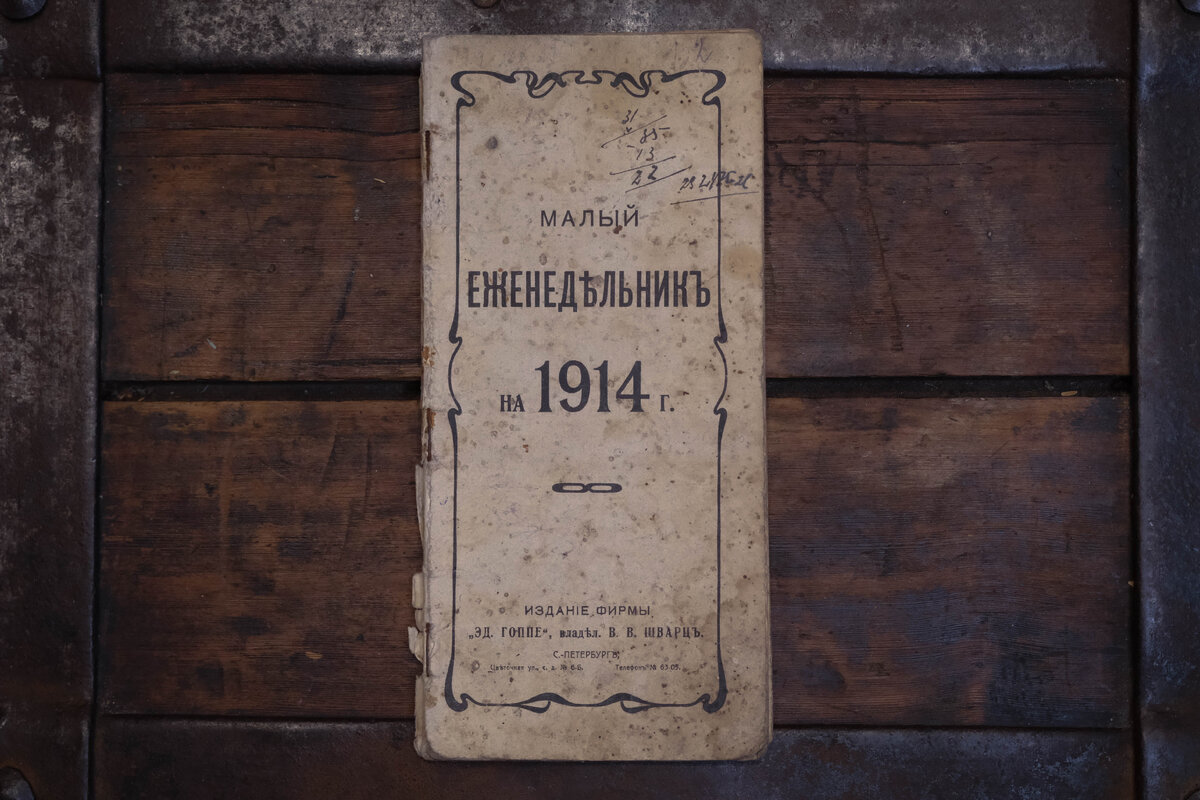 2
31
85
13
22
МАЛЫЙ
ЕЖЕНЕДѢЛЬНИКЪ
НА 1914 Г.
ИЗДАНІЕ ФИРМЫ
„ЭД. ГОППЕ“, владѣл. В. В. ШВАРЦЪ.
С.-ПЕТЕРБУРГЪ,
Цвѣточная ул., с. д. № 6-Б. Телефонъ № 63-05.